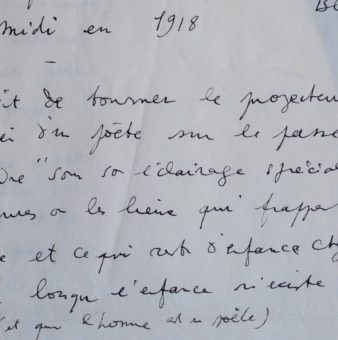 Be
midi en 1918
–
it de tourner le projecteu
ei d'un poète sur le passé
dre "son so l'éclairage spécia
mes a les lieux qui frappe
e et ce qui reste d'enfance ch
lorsque l'enfance n'existe
(et que l'homme est un poète)